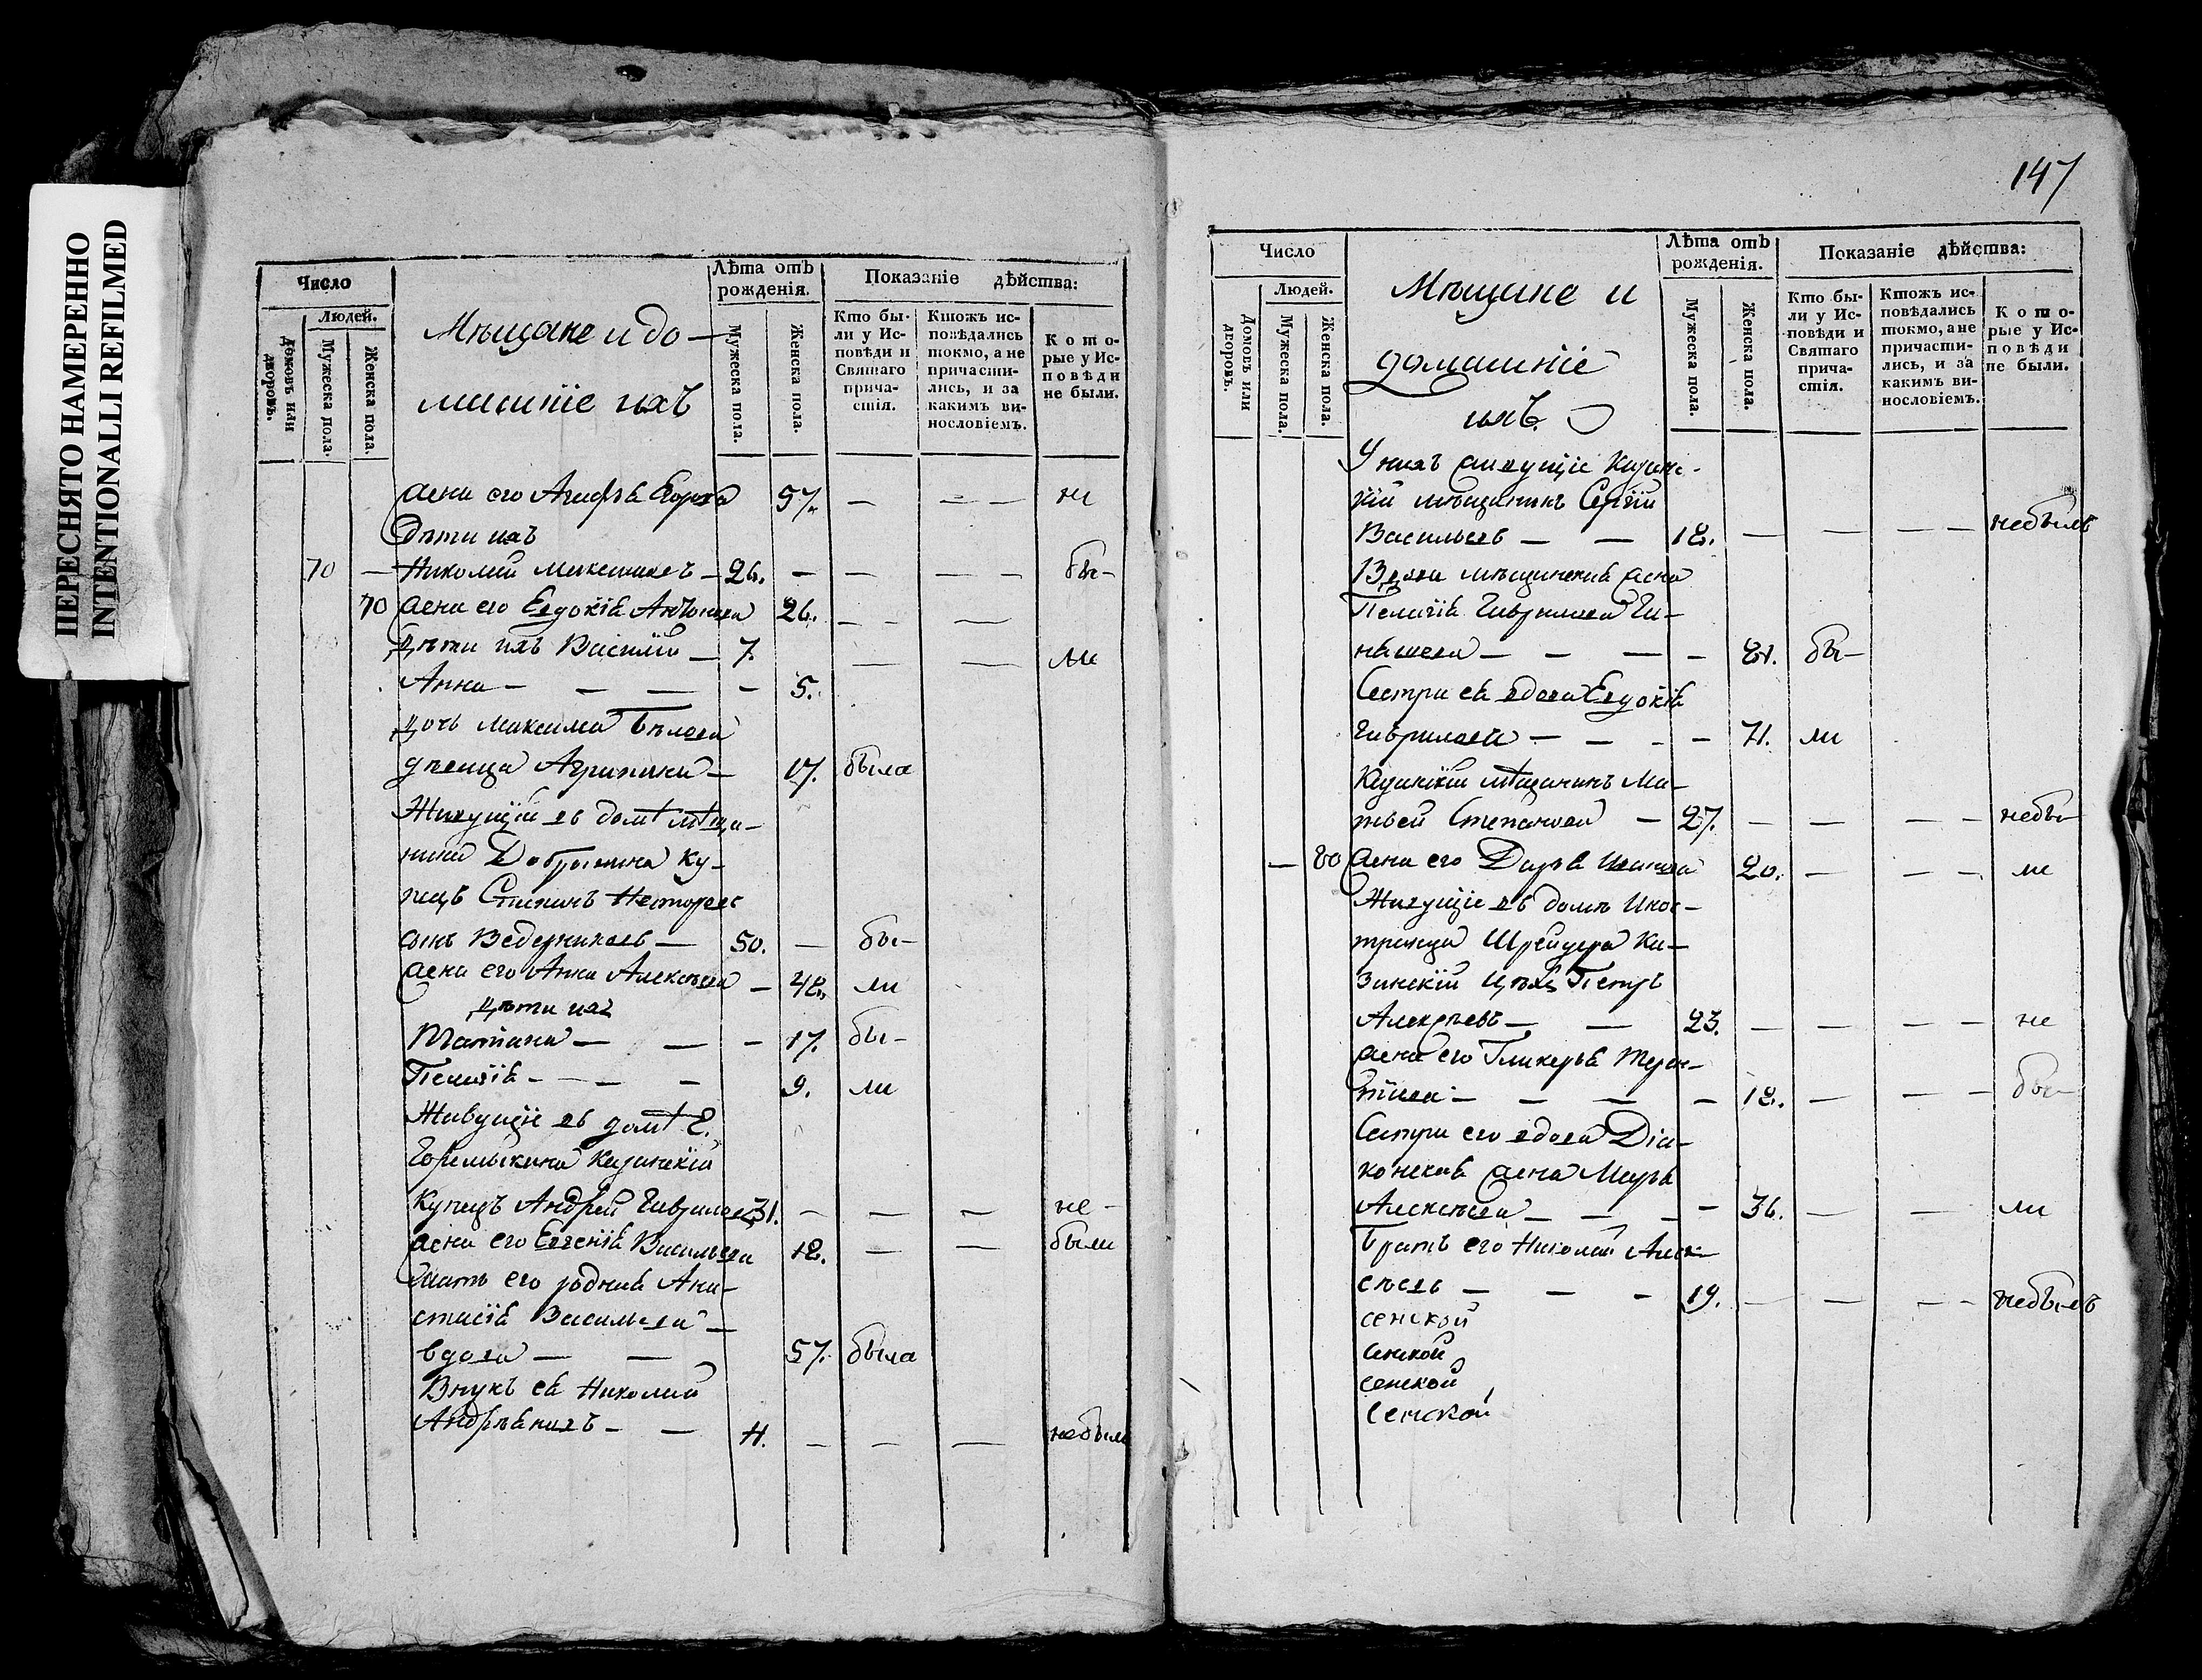 ПЕРЕСНЯТО НАМЕРЕННО
INTENTIONALLI REFILMED
Число
Людей.
Домовъ или дворовъ.
Мужеска пола.
Женска пола.
Мѣщане и до-
машніе ихъ
Лѣта отъ рожденія.
Мужеска пола.
Женска пола.
Показаніе дѣйства:
Кто бы-
ли у Ис-
повѣди и
Святаго
прича-
стія.
Ктожъ ис-
повѣдались
токмо, а не
причасти-
лись, и за
какимъ ви-
нословіемъ.
Кото-
рые у Ис-
повѣди
не были.
жена его Агафья Егорова 57. — — — не
Дѣти ихъ
70 — Николай Максимовъ — 26. — — — — бы-
70 жена его Евдокія Антонова 26. — — —
Дѣти ихъ Василій — 7. — — ли
Анна — — — — 5.
Дочь Максима
дѣвица Агрипина — 17. была
Живущій въ домѣ мѣща-
нина Добрынина ку-
пецъ Стефанъ Несторовъ
сынъ Ведерниковъ — 50. — бы-
жена его Анна Алексѣева — 48. ли
Дѣти ихъ
Татіана — — — 17. бы-
Пелагія — — — 9. ли
Живущіе въ домѣ Г.
Горемыкина Казанскій
Купецъ Андрей Гавриловъ 31. — — — не-
жена его Евгенія Васильева 18. — — были
Мать его родная Ана-
стасія Васильева —
вдова — — 57. была
Внукъ ея Николай
Андреяновъ — — 4. — — — небылъ
147
Число
Людей.
Домовъ или дворовъ.
Мужеска пола.
Женска пола.
Мѣщане и
домашніе
ихъ.
Лѣта отъ
рожденія.
Мужеска пола.
Женска пола.
Показаніе дѣйства:
Кто бы-
ли у Ис-
повѣди и
Святаго
прича-
стія.
Ктожъ ис-
повѣдались
токмо, а не
причасти-
лись, и за
какимъ ви-
нословіемъ.
Кото-
рые у Ис-
повѣди
не были.
У нихъ живущіе Казанс-
кій мѣщанинъ Сергій
Васильевъ — — 18. — — — — небылъ
Вдова мѣщанская жена
Пелагія Гаврилова
— — — — 81. бы-
Сестра ея вдова Евдокія
Гаврилова — — — — 71. ли
Казанскій мѣщанинъ Ма-
твей Степановъ — 27. — — — — небы-
— 80 жена его Дарья Иванова 20. — — — ли
Живущіе въ домѣ Инос-
транца Шрейдера Ка-
занскій цѣхъ Петръ
Алексѣевъ — — 23. — — — — не
жена его Гликерья Терен-
тіева — — — — 18. — — — бы-
Сестра его вдова Діа-
конская жена Марья
Алексѣева — — — — 36. — — ли
Братъ его Николай Алек-
сѣевъ — — — 19. — — — — небылъ
сенской
сенской
сенской
сенской